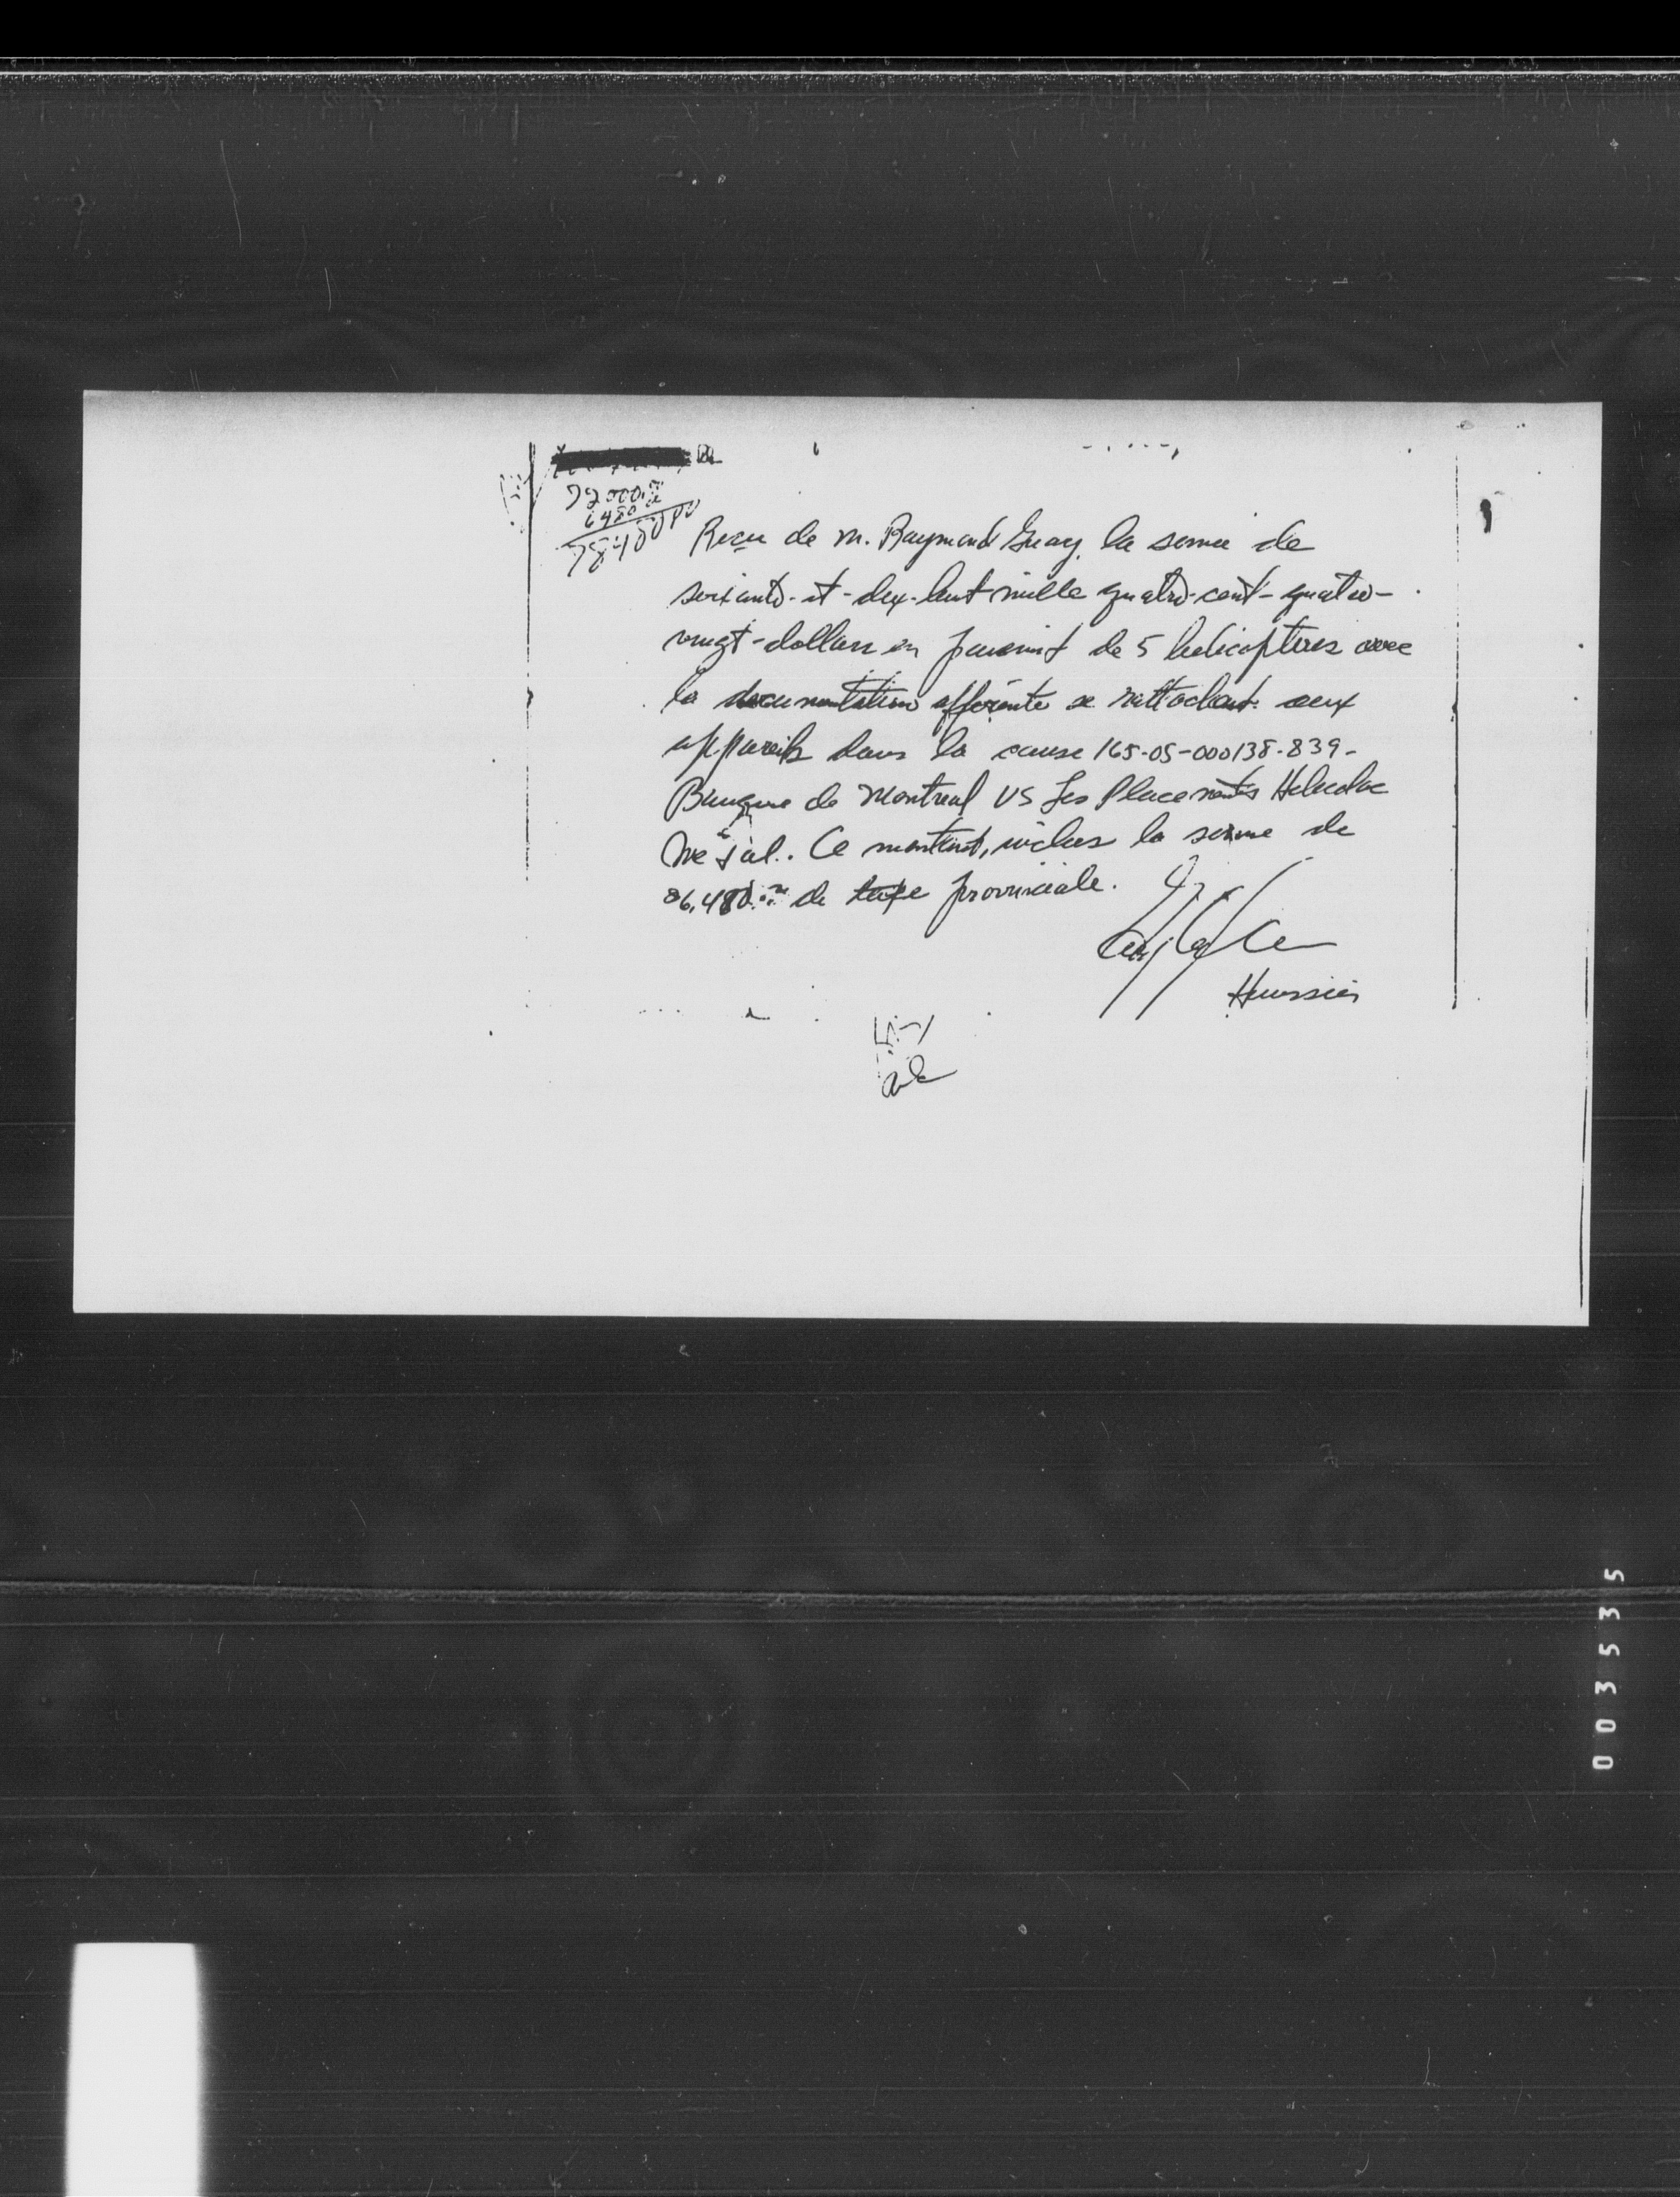 72000.00
6480.00
78480.00
Reçu de M. Raymond Guay, la somme de
soixante-et-dix-huit mille quatre-cent-quatre-
vingt-dollars en paiement de 5 helicoptères avec
la documentation afférente se rattachant aux
appareils dans la cause 165-05-000138-839-
Banque de Montreal VS Les Placements
Inc & al. Ce montant, inclus la somme de
6,480.00 de taxe provinciale.
Huissier
003535